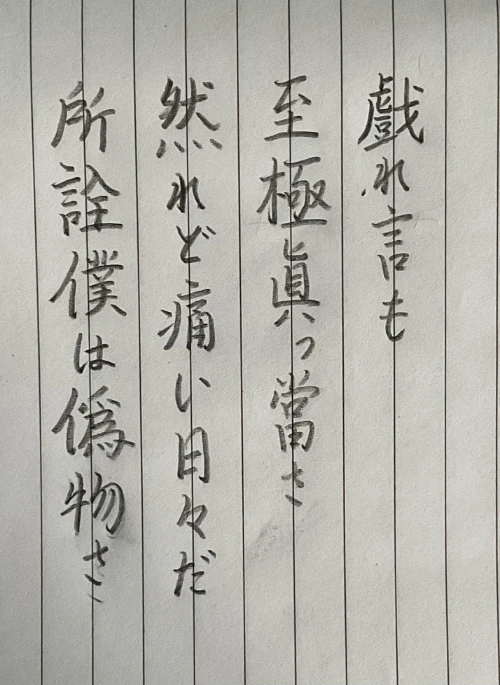 戲れ言も
至極眞っ當さ
然れど痛い日々だ
所詮僕は偽物さ